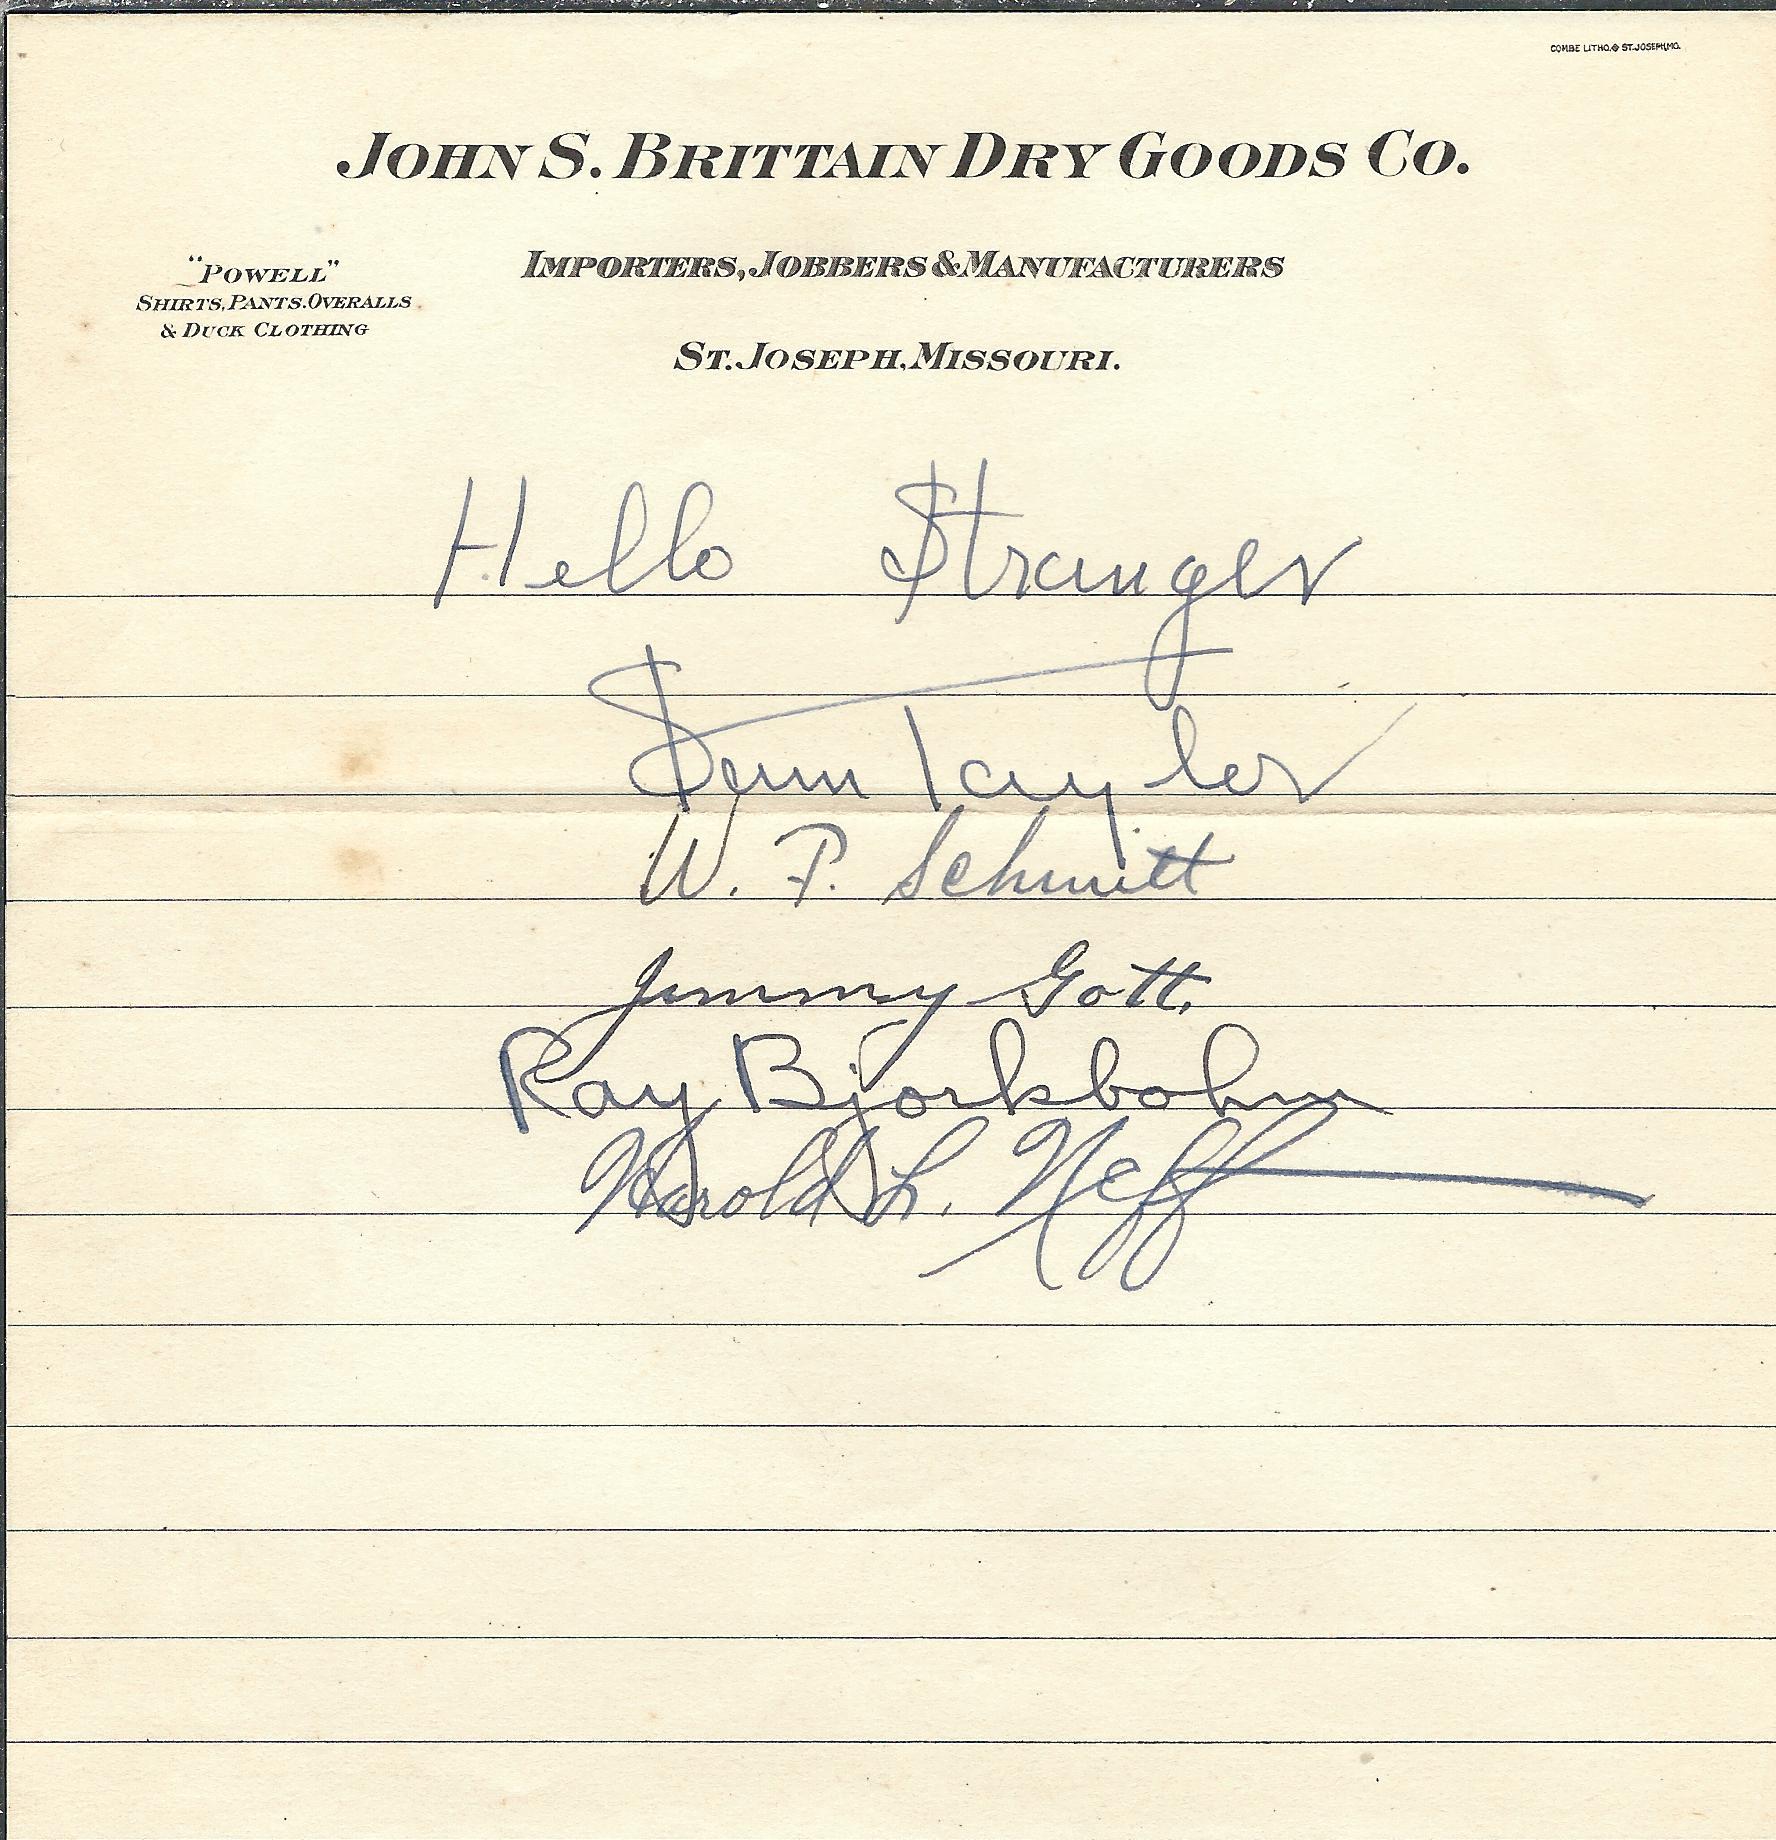 COMBE LITHO. ST. JOSEPH, MO.
JOHN S. BRITTAIN DRY GOODS CO.
"POWELL"
SHIRTS, PANTS, OVERALLS
& DUCK CLOTHING
IMPORTERS, JOBBERS & MANUFACTURERS
ST. JOSEPH, MISSOURI.
Hello Stranger
Sam Taylor
W. P. Schmitt
Jimmy Gott.
Ray Bjorkbohm
Harold L. Neff